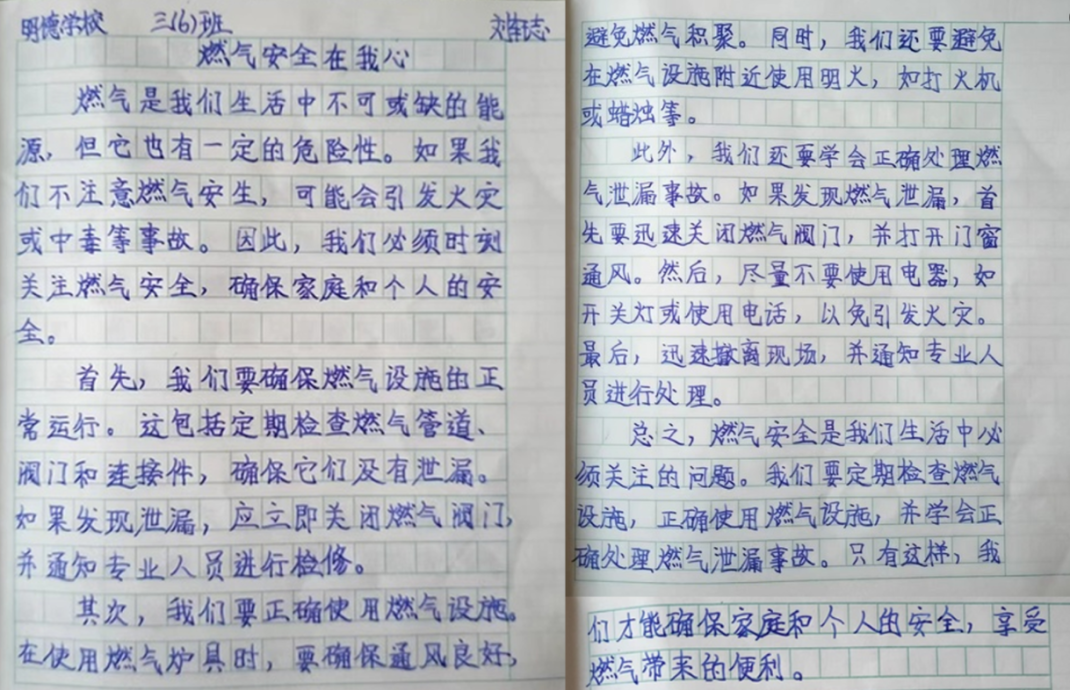 明德学校 三(6)班 刘轩志
燃气安全在我心
燃气是我们生活中不可或缺的能
源，但它也有一定的危险性。如果我
们不注意燃气安生，可能会引发火灾
或中毒等事故。因此，我们必须时刻
关注燃气安全，确保家庭和个人的安
全。
首先，我们要确保燃气设施的正
常运行。这包括定期检查燃气管道、
阀门和连接件，确保它们没有泄漏。
如果发现泄漏，应立即关闭燃气阀门，
并通知专业人员进行检修。
其次，我们要正确使用燃气设施。
在使用燃气炉具时，要确保通风良好，
避免燃气积聚。同时，我们还要避免
在燃气设施附近使用明火，如打火机
或蜡烛等。
此外，我们还要学会正确处理燃
气泄漏事故。如果发现燃气泄漏，首
先要迅速关闭燃气阀门，并打开门窗
通风。然后，尽量不要使用电器，如
开关灯或使用电话，以免引发火灾。
最后，迅速撤离现场，并通知专业人
员进行处理。
总之，燃气安全是我们生活中必
须关注的问题。我们要定期检查燃气
设施，正确使用燃气设施，并学会正
确处理燃气泄漏事故。只有这样，我
们才能确保家庭和个人的安全，享受
燃气带来的便利。